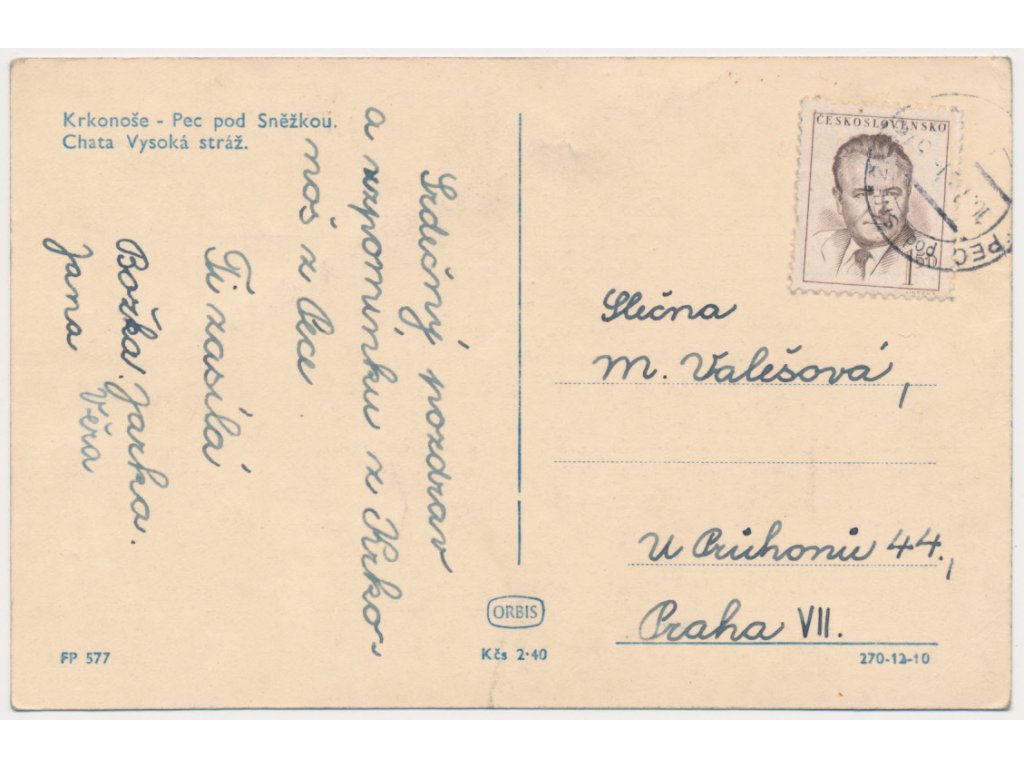 Krkonoše - Pec pod Sněžkou.
Chata Vysoká stráž.
Srdečný pozdrav
a vzpomínku z Krko-
noš z Pece
Ti zasílá
Božka. Jarka.
Věra
Jana
ČESKOSLOVENSKO
1.50
PEC pod
Slečna
M. Valešová,
U Průhonu 44.,
Praha VII.
ORBIS
FP 577
Kčs 2·40
270-12-10